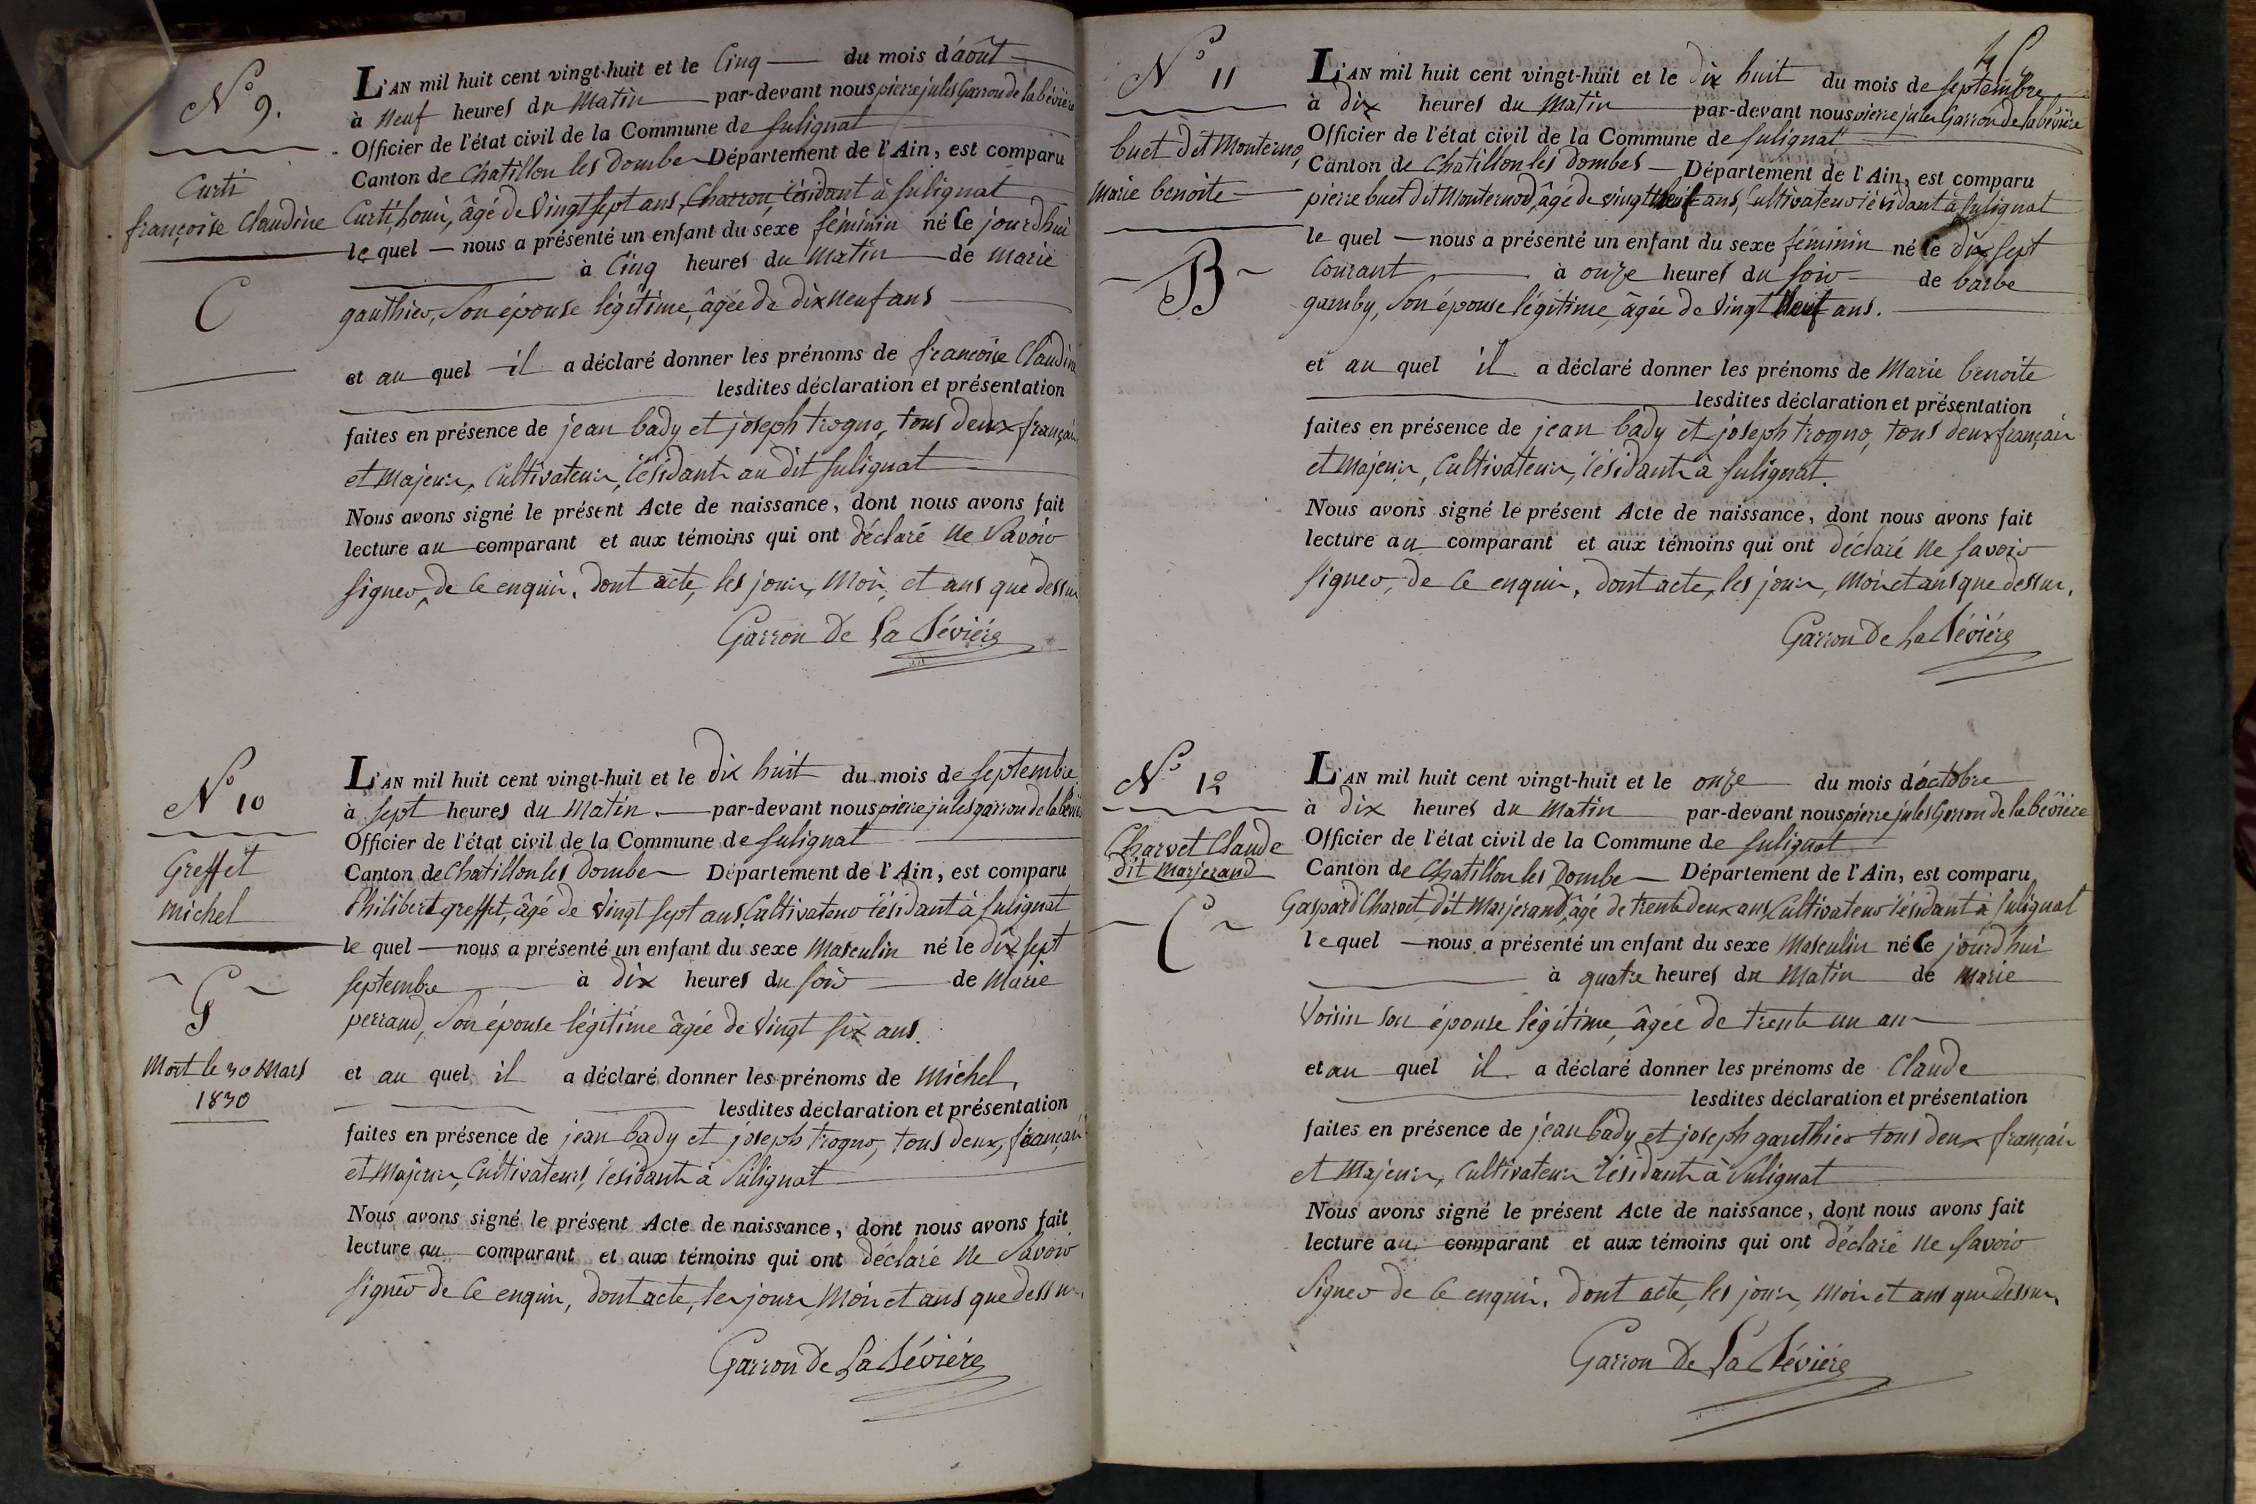 N° 9.
Curti
françoise Claudine
C
L'AN mil huit cent vingt-huit et le Cinq du mois d'août
à neuf heures du Matin par-devant nous pierre jules Garron de la bévière
Officier de l'état civil de la Commune de Sulignat
Canton de Chatillon les Dombes Département de l'Ain, est comparu
Curti, Louis, âgé de Vingt sept ans, Charron, résidant à Sulignat
le quel nous a présenté un enfant du sexe féminin né Ce jourd'hui
à Cinq heures du Matin de marie
gauthier, Son épouse légitime, âgée de dix neuf ans
et au quel il a déclaré donner les prénoms de francoise Claudine
lesdites déclaration et présentation
faites en présence de jean bady et joseph trogno, tous deux français
et Majeurs, Cultivateurs, résidants au dit Sulignat
Nous avons signé le présent Acte de naissance, dont nous avons fait
lecture au comparant et aux témoins qui ont déclaré ne Savoir
Signer, de Ce enquis. dont acte, les jours, Mois, et ans que dessus
Garron de La Bévière
N° 10
Greffet
michel
G
Mort le 30 Mars
1830
L'AN mil huit cent vingt-huit et le dix huit du mois de Septembre
à Sept heures du Matin. par-devant nous pierre jules garron de la bévière
Officier de l'état civil de la Commune de Sulignat
Canton de Chatillon les Dombes Département de l'Ain, est comparu
Philibert greffet, âgé de Vingt Sept ans, Cultivateur résidant à Sulignat
le quel nous a présenté un enfant du sexe Masculin né le dix Sept
Septembre à dix heures du Soir de Marie
perraud, Son épouse légitime âgée de Vingt Six ans.
et au quel il a déclaré donner les prénoms de Michel,
lesdites déclaration et présentation
faites en présence de jean bady et joseph trogno, tous deux, français
et Majeurs, Cultivateurs, résidants à Sulignat
Nous avons signé le présent Acte de naissance, dont nous avons fait
lecture au comparant et aux témoins qui ont déclaré ne Savoir
Signer de Ce enquis, dont acte, les jours, Mois et ans que dessus.
Garron de La Bévière
N° 11
buet dit Monternod
Marie benoite
B
L'AN mil huit cent vingt-huit et le dix huit du mois de Septembre
à dix heures du Matin par-devant nous pierre jules Garron de la bévière
Officier de l'état civil de la Commune de Sulignat
Canton de Chatillon les Dombes Département de l'Ain, est comparu
pierre buet dit Monternod, âgé de vingt neuf ans, Cultivateur résidant à Sulignat
le quel nous a présenté un enfant du sexe féminin né le dix Sept
Courant à onze heures du Soir de barbe
gamby, Son épouse légitime, âgée de Vingt Neuf ans.
et au quel il a déclaré donner les prénoms de Marie benoite
lesdites déclaration et présentation
faites en présence de jean bady et joseph trogno, tous deux français
et Majeurs, Cultivateurs, résidants à Sulignat.
Nous avons signé le présent Acte de naissance, dont nous avons fait
lecture au comparant et aux témoins qui ont déclaré ne Savoir
Signer, de Ce enquis, dont acte, les jours, Mois et ans que dessus.
Garron de La Bévière
N° 12
Charvet Claude
dit Marjerand
C
L'AN mil huit cent vingt-huit et le onze du mois d'octobre
à dix heures du Matin par-devant nous pierre jules Garron de la bévière
Officier de l'état civil de la Commune de Sulignat
Canton de Chatillon les Dombes Département de l'Ain, est comparu
Gaspard Charvet dit Marjerand, âgé de trente deux ans, Cultivateur résidant à Sulignat
le quel nous a présenté un enfant du sexe Masculin né Ce jourd'hui
à quatre heures du Matin de Marie
Voisin Son épouse légitime, âgée de trente un ans
et au quel il a déclaré donner les prénoms de Claude
lesdites déclaration et présentation
faites en présence de jean bady et joseph gauthier tous deux français
et Majeurs, Cultivateurs résidants à Sulignat
Nous avons signé le présent Acte de naissance, dont nous avons fait
lecture au comparant et aux témoins qui ont déclaré ne Savoir
Signer de Ce enquis. dont acte, les jours, Mois et ans que dessus.
Garron de La Bévière